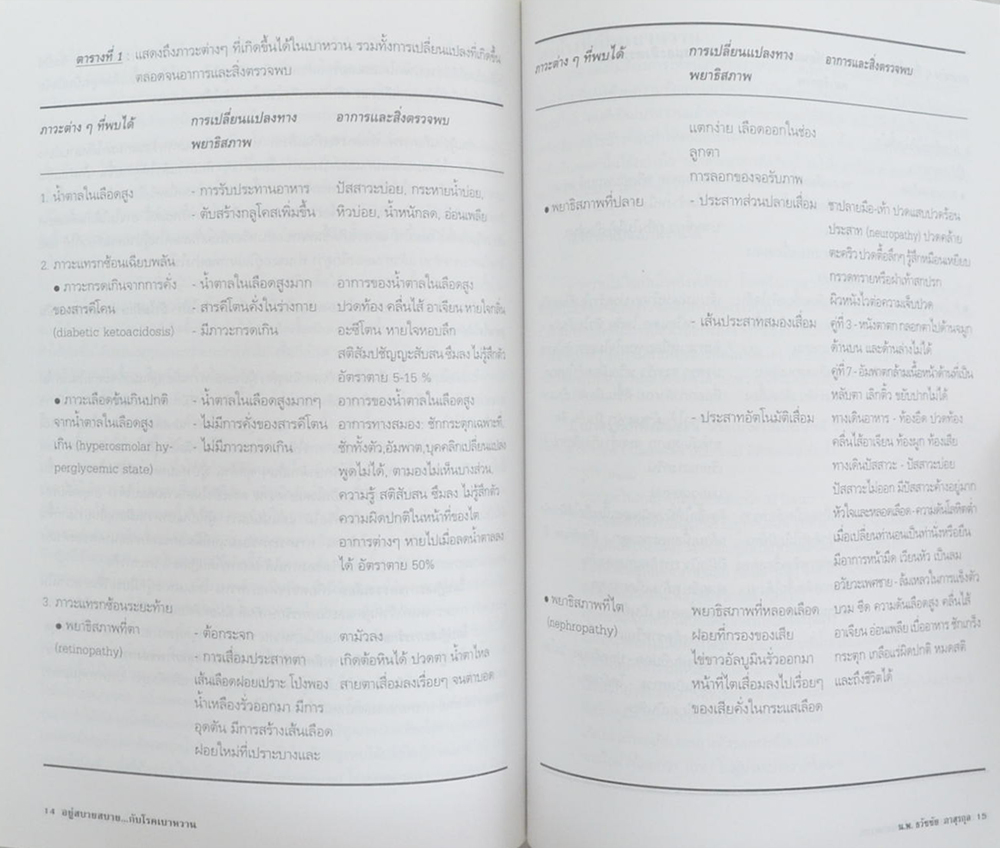 ตารางที่ 1 : แสดงถึงภาวะต่างๆ ที่เกิดขึ้นได้ในเบาหวาน รวมทั้งการเปลี่ยนแปลงที่เกิดขึ้น
ตลอดจนอาการและสิ่งตรวจพบ
ภาวะต่าง ๆ ที่พบได้ การเปลี่ยนแปลงทาง อาการและสิ่งตรวจพบ
พยาธิสภาพ
1. น้ำตาลในเลือดสูง - การรับประทานอาหาร ปัสสาวะบ่อย, กระหายน้ำบ่อย,
- ตับสร้างกลูโคสเพิ่มขึ้น หิวบ่อย, น้ำหนักลด, อ่อนเพลีย
2. ภาวะแทรกซ้อนเฉียบพลัน
• ภาวะกรดเกินจากการคั่ง - น้ำตาลในเลือดสูงมาก อาการของน้ำตาลในเลือดสูง
ของสารคีโตน - สารคีโตนคั่งในร่างกาย ปวดท้อง คลื่นไส้ อาเจียน หายใจกลิ่น
(diabetic ketoacidosis) - มีภาวะกรดเกิน อะซีโตน หายใจหอบลึก
สติสัมปชัญญะสับสน ซึมลง ไม่รู้สึกตัว
อัตราตาย 5-15 %
• ภาวะเลือดข้นเกินปกติ - น้ำตาลในเลือดสูงมากๆ อาการของน้ำตาลในเลือดสูง
จากน้ำตาลในเลือดสูง - ไม่มีการคั่งของสารคีโตน อาการทางสมอง: ชักกระตุกเฉพาะที่,
เกิน (hyperosmolar hy- - ไม่มีภาวะกรดเกิน ชักทั้งตัว,อัมพาต,บุคคลิกเปลี่ยนแปลง
perglycemic state) พูดไม่ได้, ตามองไม่เห็นบางส่วน
ความรู้ สติสับสน ซึมลง ไม่รู้สึกตัว
ความผิดปกติในหน้าที่ของไต
อาการต่างๆ หายไปเมื่อลดน้ำตาลลง
ได้ อัตราตาย 50%
3. ภาวะแทรกซ้อนระยะท้าย
• พยาธิสภาพที่ตา - ต้อกระจก ตามัวลง
(retinopathy) - การเสื่อมประสาทตา เกิดต้อหินได้ ปวดตา น้ำตาไหล
เส้นเลือดฝอยเปราะ โป่งพอง สายตาเสื่อมลงเรื่อยๆ จนตาบอด
น้ำเหลืองรั่วออกมา มีการ
อุดตัน มีการสร้างเส้นเลือด
ฝอยใหม่ที่เปราะบางและ
14 อยู่สบายสบาย...กับโรคเบาหวาน
ภาวะต่าง ๆ ที่พบได้ การเปลี่ยนแปลงทาง อาการและสิ่งตรวจพบ
พยาธิสภาพ
แตกง่าย เลือดออกในช่อง
ลูกตา
การลอกของจอรับภาพ
• พยาธิสภาพที่ปลาย - ประสาทส่วนปลายเสื่อม ชาปลายมือ-เท้า ปวดแสบปวดร้อน
ประสาท (neuropathy) ปวดคล้าย
ตะคริว ปวดตื้อลึกๆ รู้สึกเหมือนเหยียบ
กรวดทรายหรือฝ่าเท้าสกปรก
ผิวหนังไวต่อความเจ็บปวด
- เส้นประสาทสมองเสื่อม คู่ที่ 3 - หนังตาตก กลอกตาไปด้านจมูก
ด้านบน และด้านล่างไม่ได้
คู่ที่ 7 - อัมพาตกล้ามเนื้อหน้าด้านที่เป็น
หลับตา เลิกคิ้ว ขยับปากไม่ได้
- ประสาทอัตโนมัติเสื่อม ทางเดินอาหาร - ท้องอืด ปวดท้อง
คลื่นไส้อาเจียน ท้องผูก ท้องเสีย
ทางเดินปัสสาวะ - ปัสสาวะบ่อย
ปัสสาวะไม่ออก มีปัสสาวะค้างอยู่มาก
หัวใจและหลอดเลือด - ความดันโลหิตต่ำ
เมื่อเปลี่ยนท่านอนเป็นท่านั่งหรือยืน
มีอาการหน้ามืด เวียนหัว เป็นลม
อวัยวะเพศชาย - ล้มเหลวในการแข็งตัว
• พยาธิสภาพที่ไต พยาธิสภาพที่หลอดเลือด บวม ซีด ความดันเลือดสูง คลื่นไส้
(nephropathy) ฝอยที่กรองของเสีย อาเจียน อ่อนเพลีย เบื่ออาหาร ชักเกร็ง
ไข่ขาวอัลบูมินรั่วออกมา กระตุก เกลือแร่ผิดปกติ หมดสติ
หน้าที่ไตเสื่อมลงไปเรื่อยๆ และถึงชีวิตได้
ของเสียคั่งในกระแสเลือด
น.พ. ธวัชชัย ภาสุรกุล 15